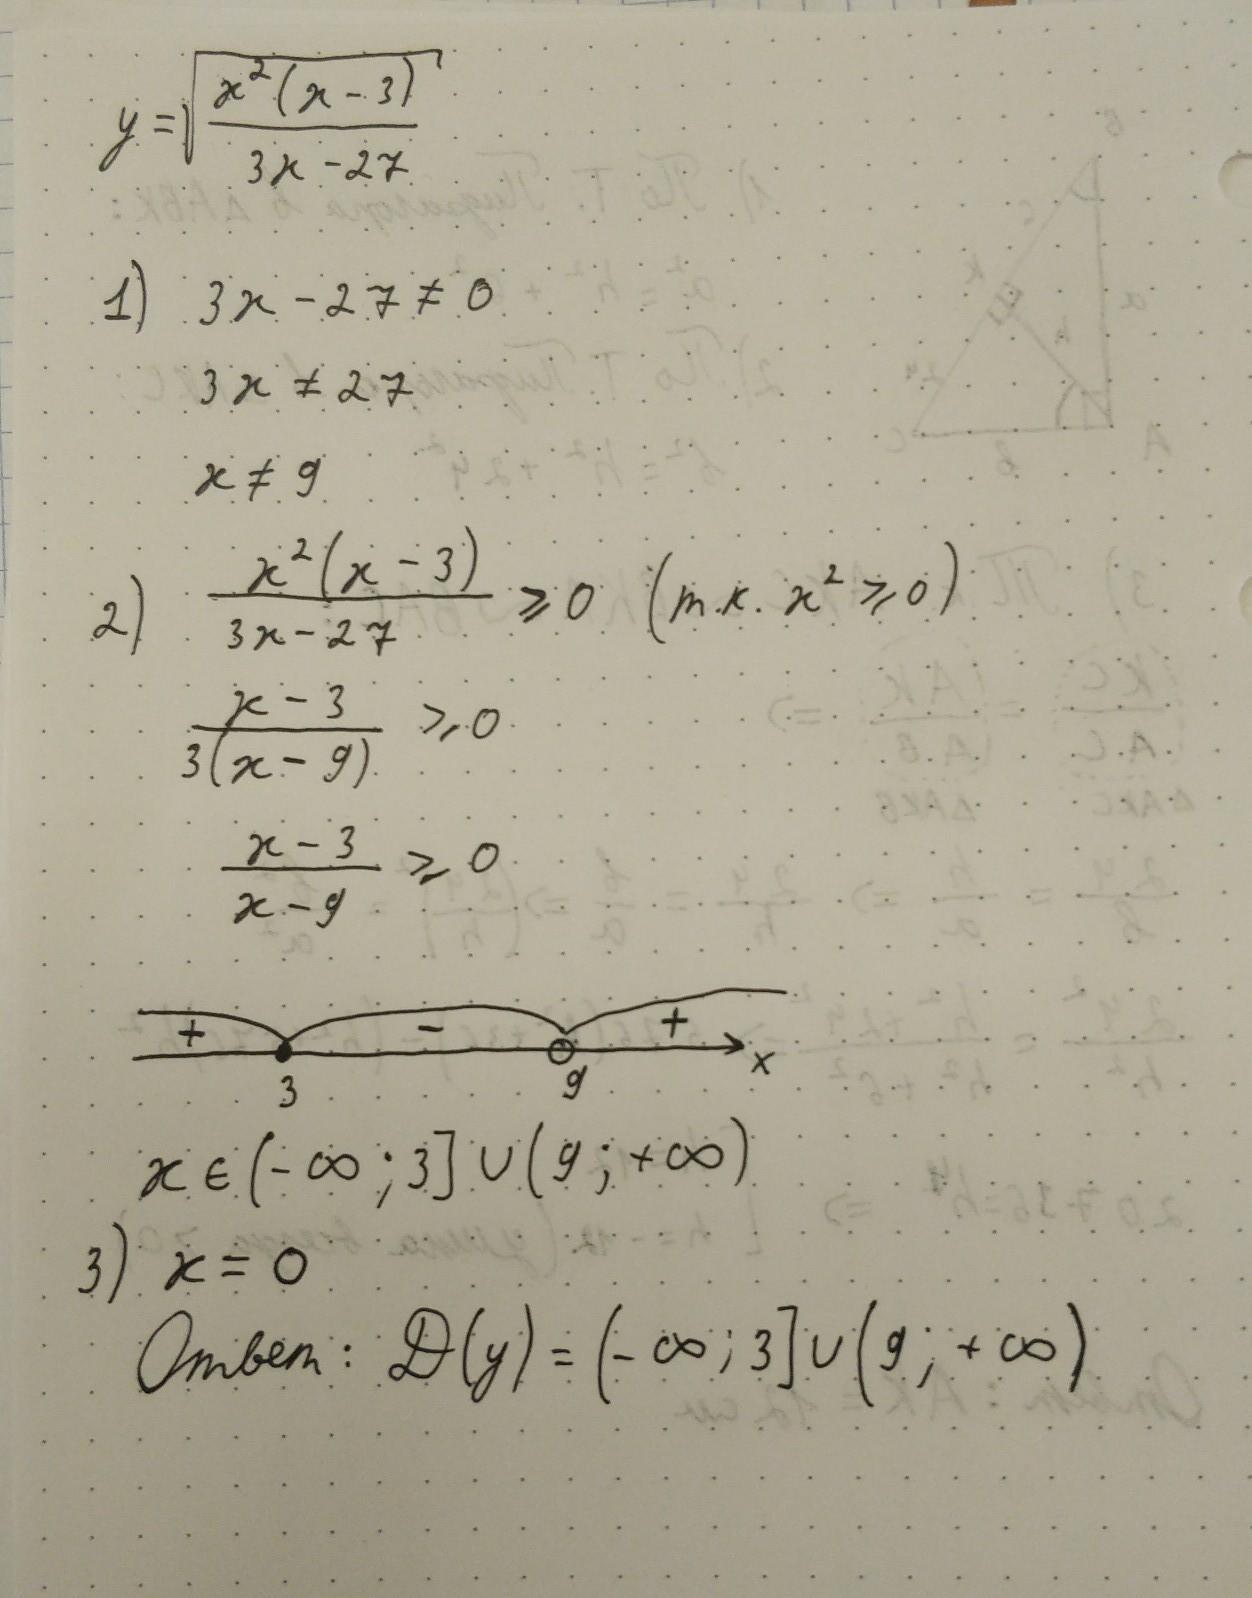 y = √(x²(x - 3) / (3x - 27))
1) 3x - 27 ≠ 0
3x ≠ 27
x ≠ 9
2) x²(x - 3) / (3x - 27) ⩾ 0 (т.к. x² ⩾ 0)
(x - 3) / 3(x - 9) ⩾ 0
(x - 3) / (x - 9) ⩾ 0
+ - +
3 9 x
x ∈ (-∞; 3] ∪ (9; +∞)
3) x = 0
Ответ: D(y) = (-∞; 3] ∪ (9; +∞)